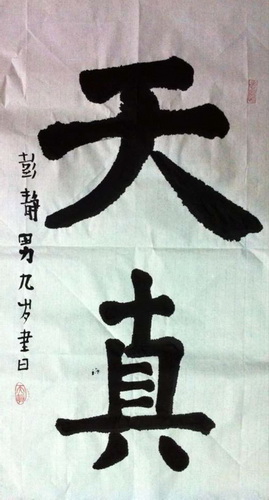 天真
彭静男九岁书日